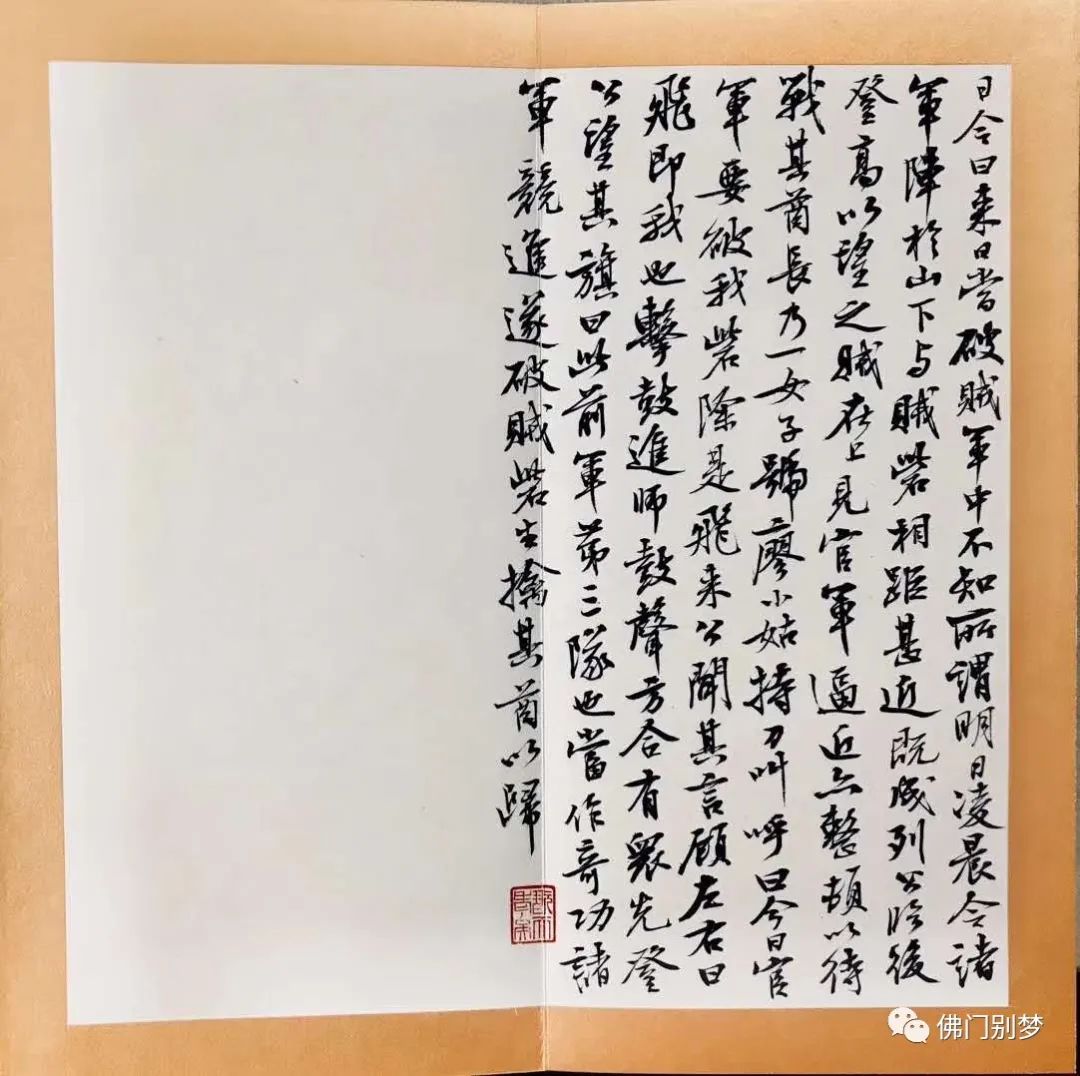 曰今日来日當破賊軍中不知所謂明日凌晨令諸
軍陣於山下与賊砦相距甚近既成列公臨後
登高以望之賊在上見官軍逼近亦整頓以待
戰其酋長乃一女子號廖小姑持刀叫呼曰今日官
軍要破我砦除是飛来公聞其言顧左右曰
飛即我也擊鼓進師鼓聲方合有眾先登
公望其旗曰此前軍第三隊也當作奇功諸
軍競進遂破賊砦生擒其酋以歸
佛门别梦